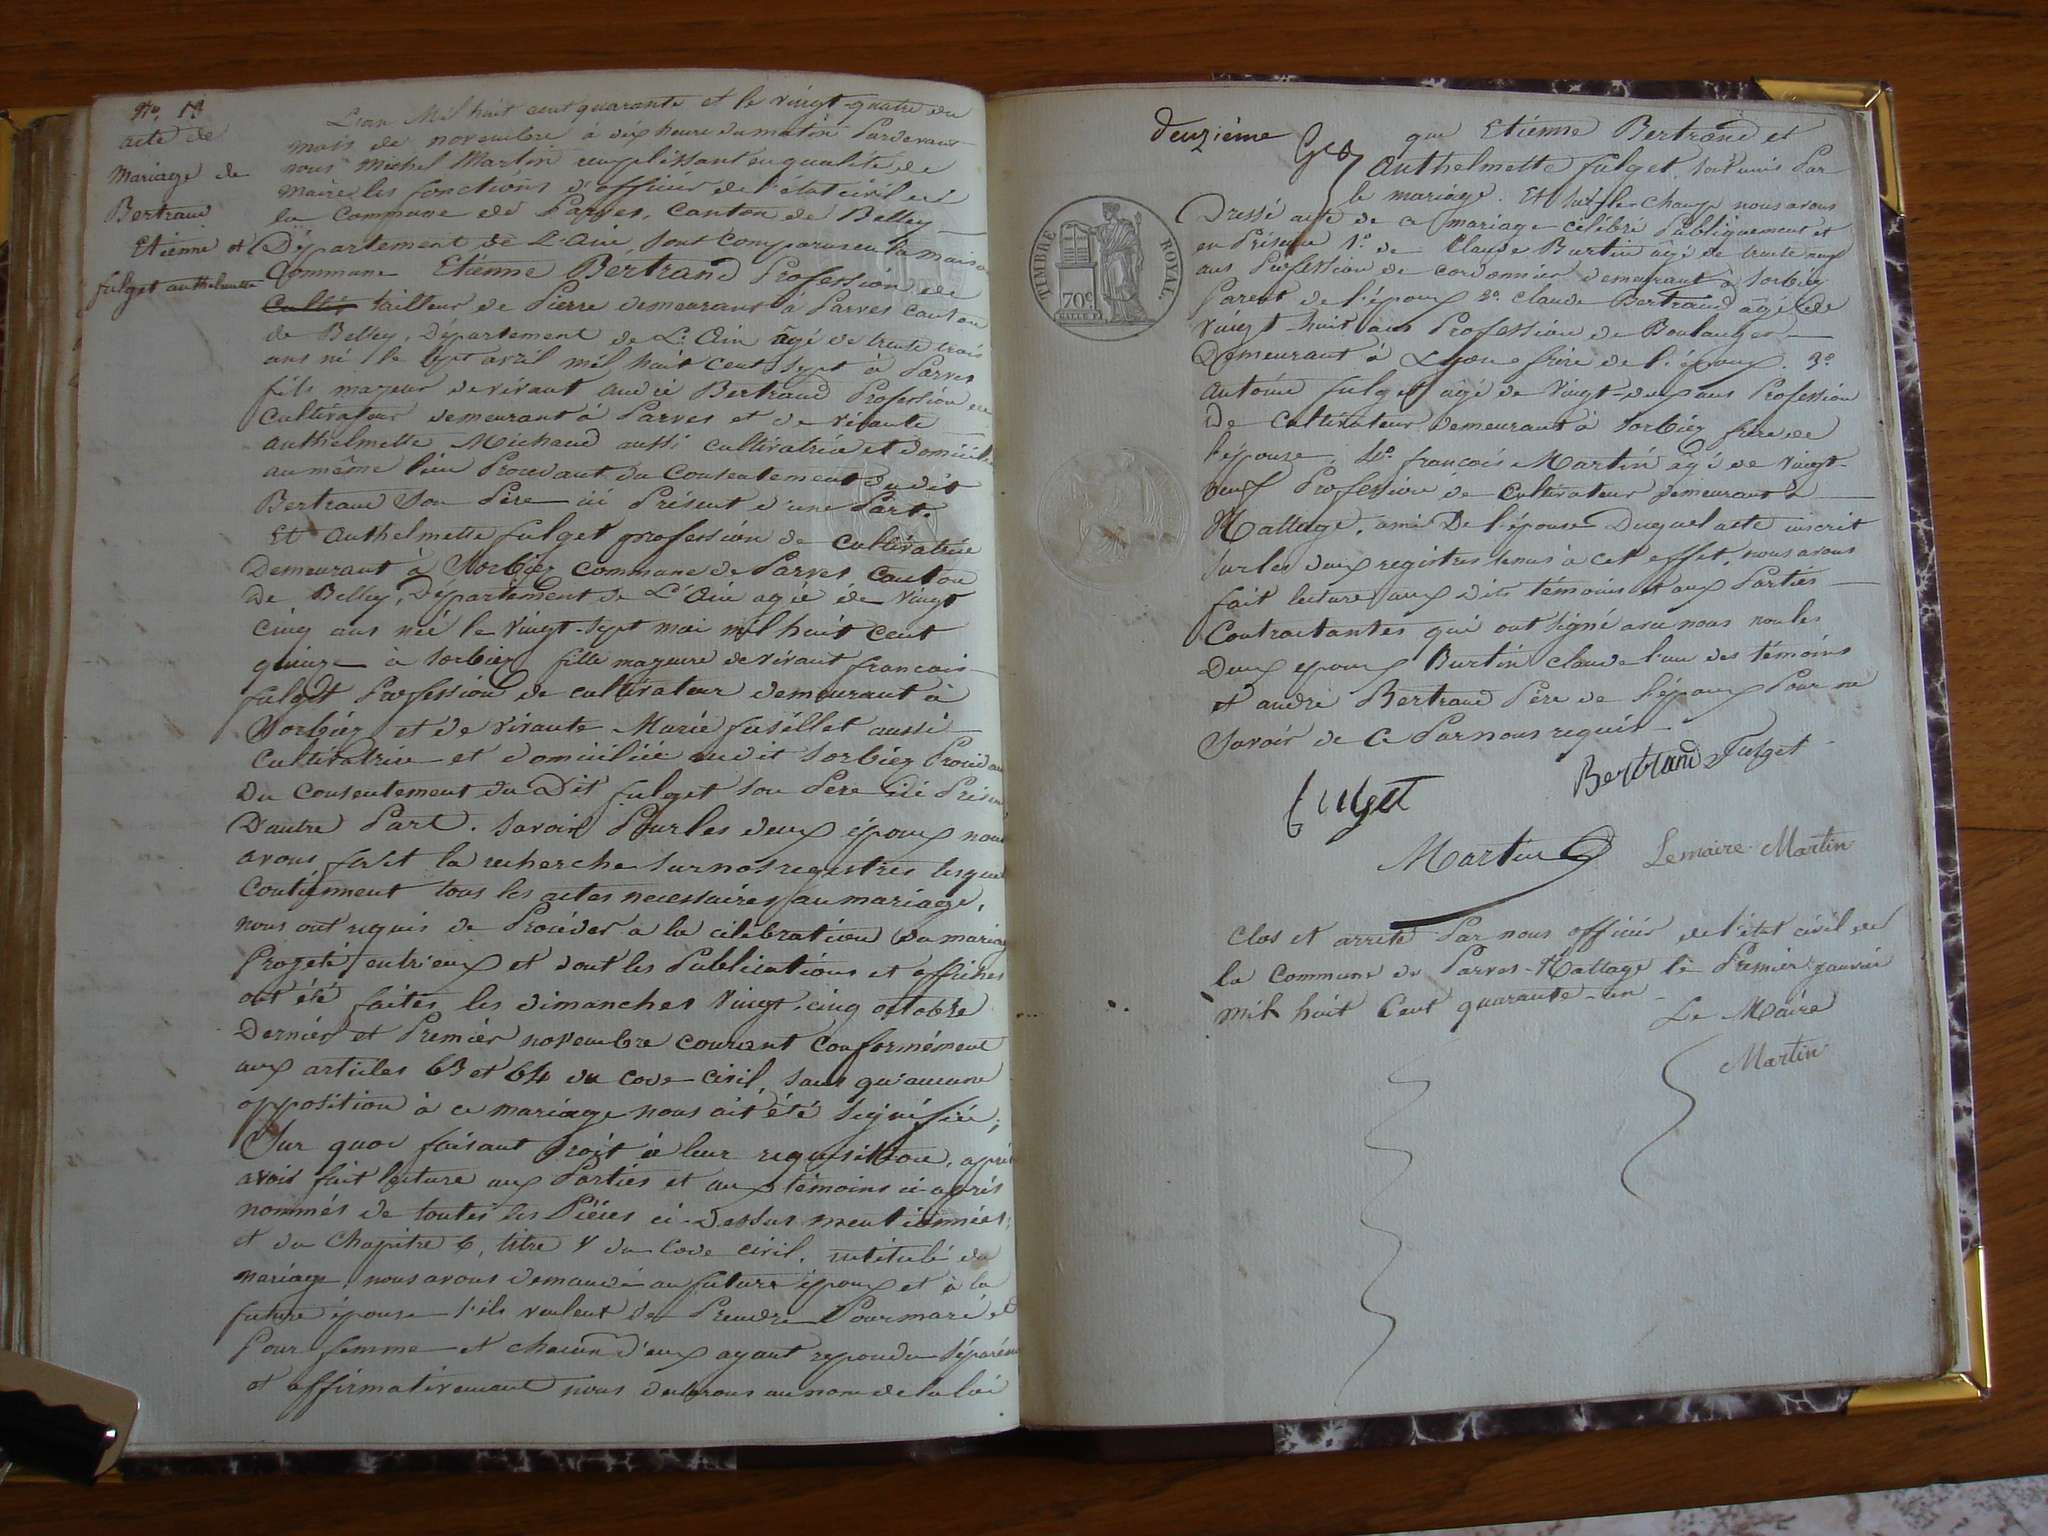 No. 13
acte de
Mariage de
Bertrand
Etienne et
fulget anthelmette
L'an Mil huit cent quarante et le vingt-quatre du
mois de novembre à dix heure du matin Pardevant
nous Michel Martin remplissant en qualité de
maire les fonctions d'officier de l'état civil de
la Commune de Parves, Canton de Belley
Département de L'Ain, sont comparus en la maison
Commune Etienne Bertrand Profession de
tailleur de Pierre demeurant à Parves Canton
de Belley, Département de L'Ain âgé de trente trois
ans né le sept avril mil huit cent sept à Parves
fils majeur de vivant André Bertrand Profession de
Cultivateur demeurant à Parves et de vivante
anthelmette Michaud aussi cultivatrice et domicilié
au même lieu Procédant du Consentement du dit
Bertrand Son Père ici Présent d'une Part.
Et Anthelmette fulget profession de Cultivatrice
Demeurant à Sorbiez Commune de Parves Canton
de Belley, Département de L'Ain agée de vingt
cinq ans née le vingt-sept mai mil huit cent
quinze à Sorbiez fille majeure de vivant francois
fulget Profession de cultivateur demeurant à
Sorbiez et de vivante Marie fusillet aussi
Cultivatrice et domiciliée au dit Sorbiez Procédant
Du Consentement du Dit fulget Son Père ici Présent
D'autre Part. Savoir Pour les deux époux nous
avons fait la recherche sur nos registres lesquels
Contiennent tous les actes necessaires au mariage,
nous ont requis de Procéder à la célébration du mariage
Projeté entr'eux et dont les Publications et affiches
ont été faites les dimanches vingt-cinq octobre
Dernier et Premier novembre courant Conformément
aux articles 63 et 64 du Code Civil, Sans qu'aucune
opposition à ce mariage nous ait été Signifiée;
Sur quoi faisant Droit à leur requisition, après
avoir fait lecture aux Parties et aux témoins ci-après
nommés de toutes les Pièces ci-Dessus mentionnées
et du Chapitre 6, titre V du Code Civil, intitulé du
mariage, nous avons demandé au futur époux et à la
future épouse s'ils veulent se Prendre Pour mari et
Pour femme et chacun d'eux ayant repondu séparément
et affirmativement nous declarons au nom de la loi
deuzième
que Etienne Bertrand et
Anthelmette fulget, sont unis Par
le mariage. Et sur le champ nous avons
Dressé acte de ce mariage célébré Publiquement et
en Présence 1.° de Claude Burtin âgé de trente neuf
ans Profession de cordonnier demeurant à Sorbiez
Parent de l'époux 2.° Claude Bertrand âgé de
vingt-huit ans Profession de Boulanger
Demeurant à Lyon frère de l'époux. 3.°
Antoine fulget âgé de vingt-deux ans Profession
De Cultivateur demeurant à Sorbiez frère de
l'épouse, 4.° françois Martin âgé de vingt-
neuf Profession de Cultivateur demeurant à
Nattage, ami De l'épouse Duquel acte inscrit
Sur les deux registres tenus à cet effet, nous avons
fait lecture aux dits témoins et aux Parties
Contractantes qui ont signé avec nous non les
Deux epoux Burtin Claude l'un des témoins
et andré Bertrand Père de l'époux Pour ne
Savoir de ce Par nous requis
fulget
Bertrand
Fulget
Martin
Lemaire Martin
Clos et arreté Par nous officier de l'état civil de
la Commune de Parves-Nattage le Premier janvier
mil huit Cent quarante-un
Le Maire
Martin
TIMBRE ROYAL
70c